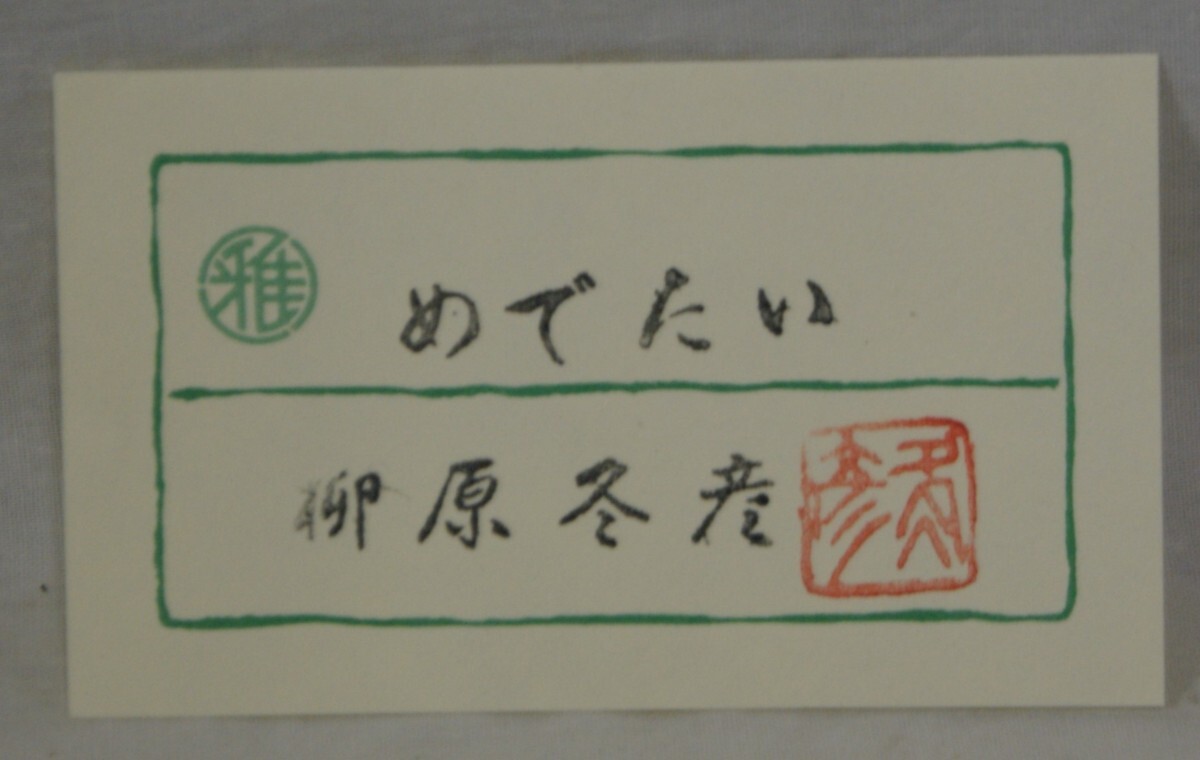 雅
めでたい
柳原冬彦